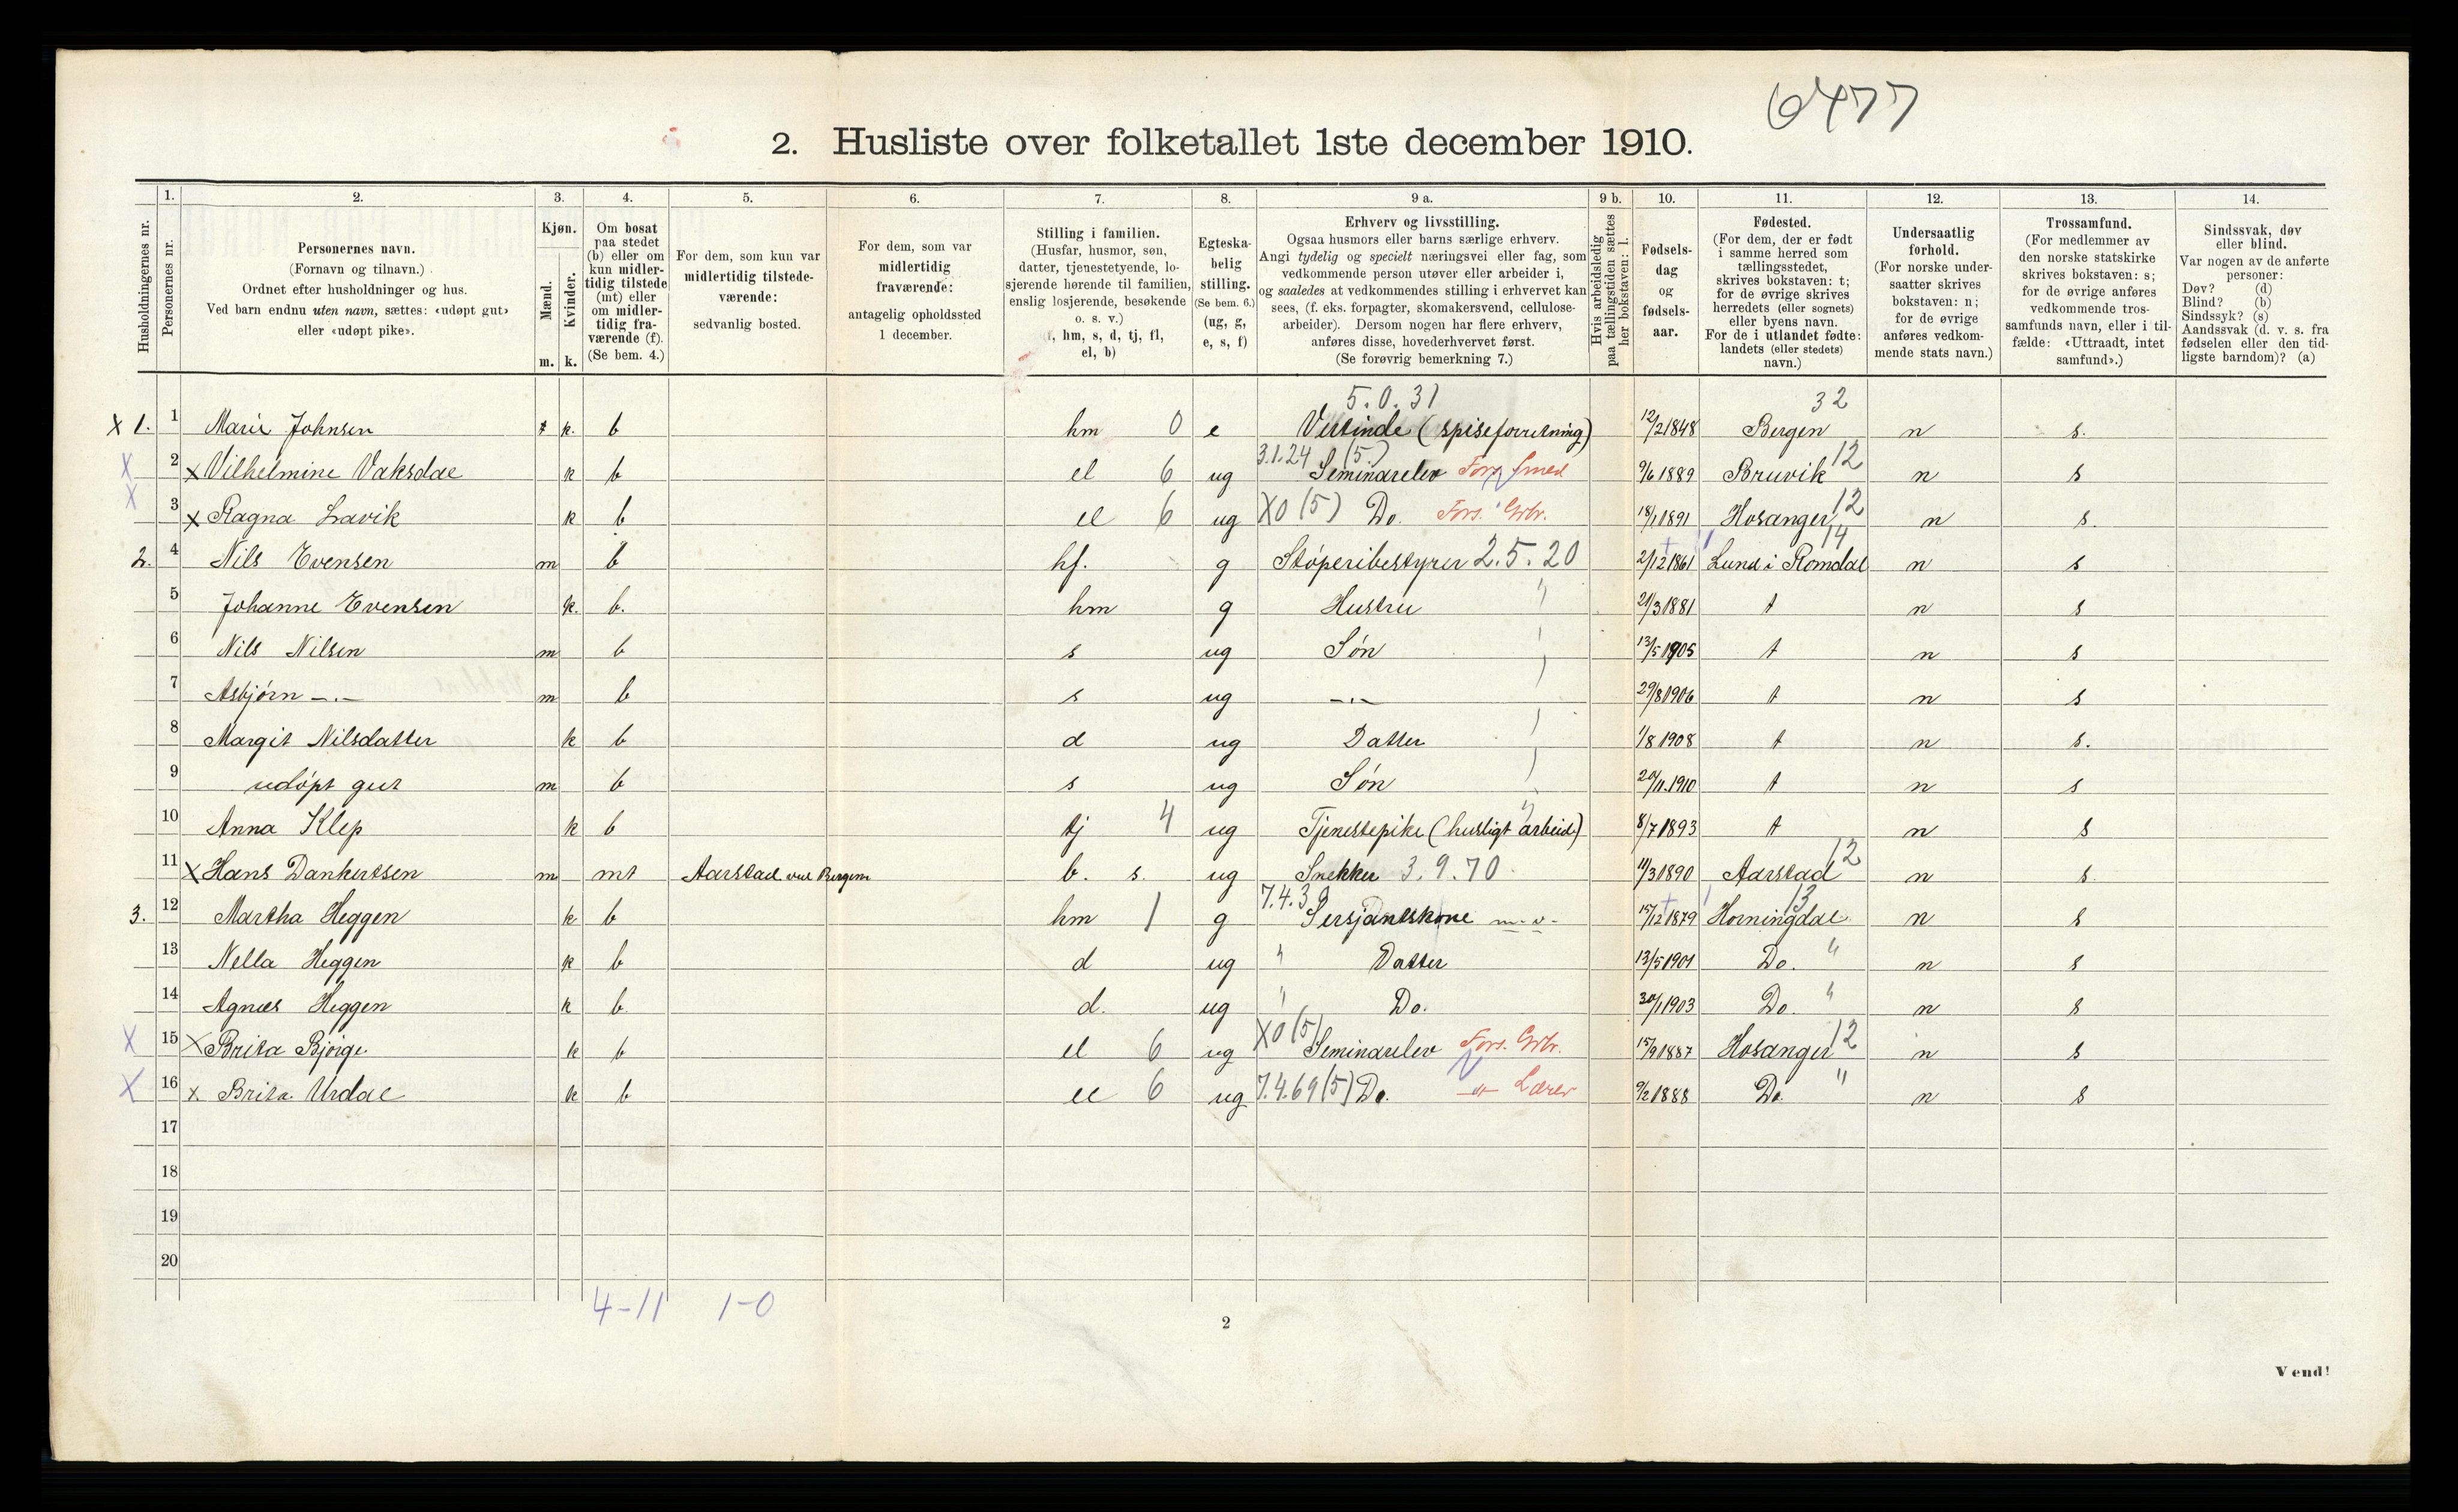 6477
2. Husliste over folketallet 1ste december 1910.
Husholdningernes nr.
1. Personernes nr.
2. Personernes navn. (Fornavn og tilnavn.) Ordnet efter husholdninger og hus. Ved barn endnu uten navn, sættes: «udøpt gut» eller «udøpt pike».
3. Kjøn. Mænd. m. Kvinder. k.
4. Om bosat paa stedet (b) eller om kun midlertidig tilstede (mt) eller om midlertidig fraværende (f). (Se bem. 4.)
5. For dem, som kun var midlertidig tilstedeværende: sedvanlig bosted.
6. For dem, som var midlertidig fraværende: antagelig opholdssted 1 december.
7. Stilling i familien. (Husfar, husmor, søn, datter, tjenestetyende, losjerende hørende til familien, enslig losjerende, besøkende o. s. v.) (hf, hm, s, d, tj, fl, el, b)
8. Egteskabelig stilling. (Se bem. 6.) (ug, g, e, s, f)
9 a. Erhverv og livsstilling. Ogsaa husmors eller barns særlige erhverv. Angi tydelig og specielt næringsvei eller fag, som vedkommende person utøver eller arbeider i, og saaledes at vedkommendes stilling i erhvervet kan sees, (f. eks. forpagter, skomakersvend, cellulosearbeider). Dersom nogen har flere erhverv, anføres disse, hovederhvervet først. (Se forøvrig bemerkning 7.)
9 b. Hvis arbeidsledig paa tællingstiden sættes her bokstaven: l.
10. Fødselsdag og fødselsaar.
11. Fødested. (For dem, der er født i samme herred som tællingsstedet, skrives bokstaven: t; for de øvrige skrives herredets (eller sognets) eller byens navn. For de i utlandet fødte: landets (eller stedets) navn.)
12. Undersaatlig forhold. (For norske undersaatter skrives bokstaven: n; for de øvrige anføres vedkommende stats navn.)
13. Trossamfund. (For medlemmer av den norske statskirke skrives bokstaven: s; for de øvrige anføres vedkommende trossamfunds navn, eller i tilfælde: «Uttraadt, intet samfund».)
14. Sindssvak, døv eller blind. Var nogen av de anførte personer: Døv? (d) Blind? (b) Sindssyk? (s) Aandssvak (d. v. s. fra fødselen eller den tidligste barndom)? (a)
5.0.31 32
X 1. 1 Marie Johnsen k. b hm 0 e Vertinde (spiseforretning) 12/2 1848 Bergen n s.
X 2 x Vilhelmine Vaksdal k b el 6 ug 3.1.24 (5.) Seminarelev Fors. Smed 9/6 1889 Bruvik 12 n s
X 3 x Ragna Lavik k b el 6 ug X0 (5) Do. Fors. Grbr. 18/1 1891 Hosanger 12 n s.
2. 4 Nils Evensen m b hf. g Støperibestyrer 2.5.20 2/12 1861 Lund i Romdal 14 n s
5 Johanne Evensen k. b. hm g Hustru " 21/3 1881 t n s
6 Nils Nilsen m b s ug Søn 13/5 1905 t n s
7 Asbjørn -.- m b s ug -.- 29/8 1906 t n s
8 Margit Nilsdatter k b d ug Datter 1/8 1908 t n s.
9 udøpt gut m b s ug Søn 20/11 1910 t n s
10 Anna Klep k b tj 4 ug Tjenestepike (husligt arbeid) 8/7 1893 t n s
11 X Hans Dankertsen m mt Aarstad ved Bergen b. s. ug Snekker 3.9.70 11/3 1890 Aarstad 12 n s.
3. 12 Martha Heggen k b hm 1 g 7.4.39 Sersjantskone m.v. 15/12 1879 Horningdal 13 n s
13 Nella Heggen k b d ug " Datter 13/5 1901 Do. " n s
14 Agnes Heggen k b. d. ug " Do. 30/1 1903 Do. " n s
X 15 X Brita Bjørge k b el 6 ug X0 (5) Seminarelev Fors. Grbr. 15/9 1887 Hosanger 12 n s
X 16 x Brita Urdal k b el 6 ug 7.4.69 (5) Do. Lærer 9/2 1888 Do. " n s
17
18
19
20
4-11 1-0
2
Vend!